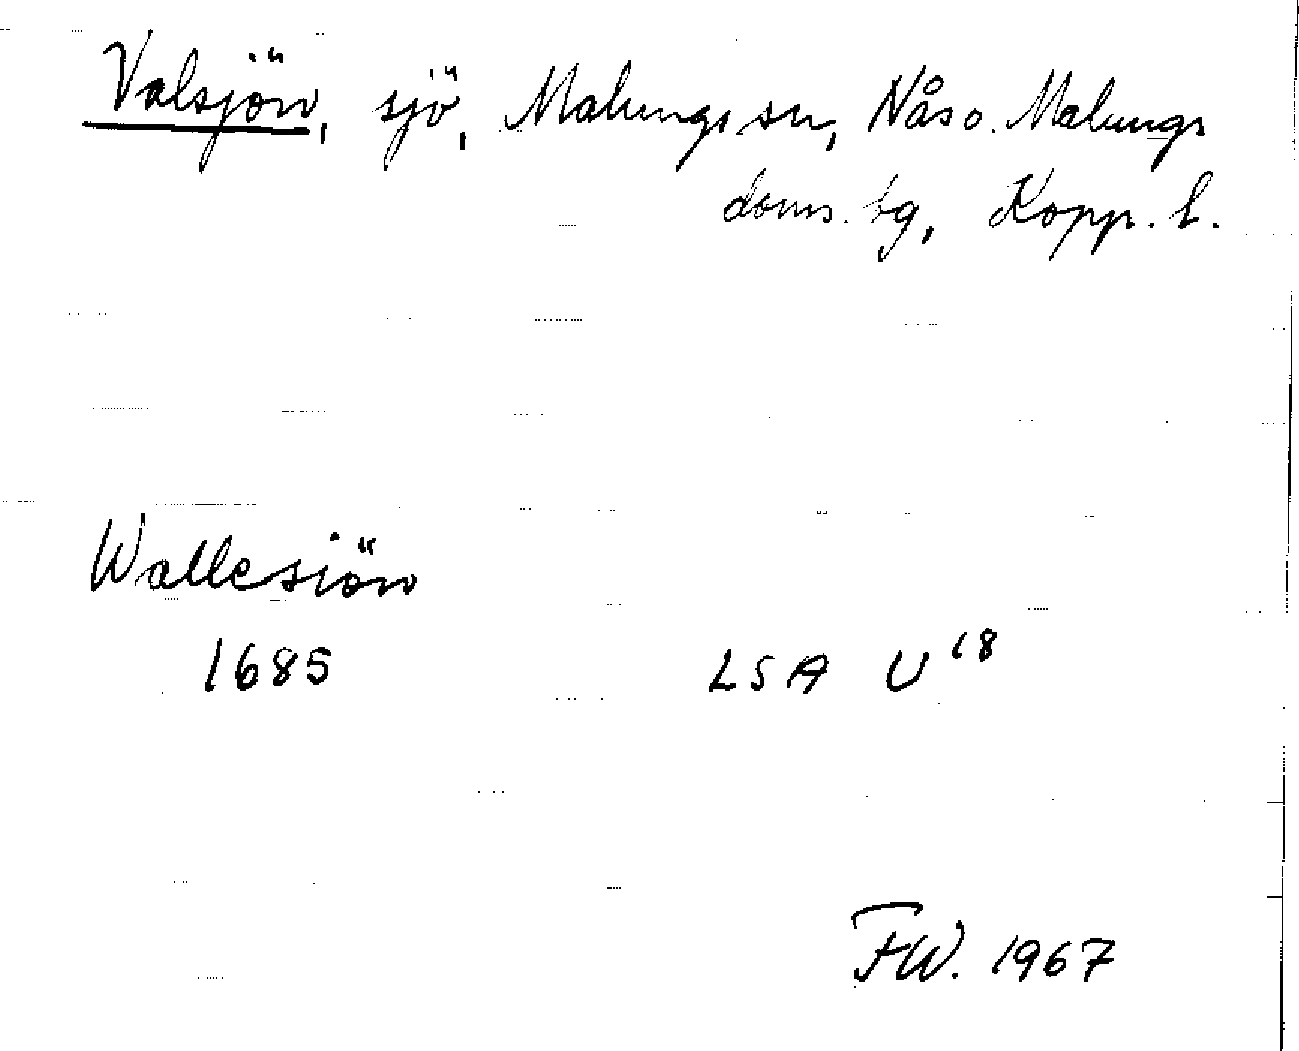 Valsjön, sjö, Malungs sn, Nås o. Malungs
doms. tg, Kopp. l.
Wallesiön
1685 LSA U 18
FW. 1967